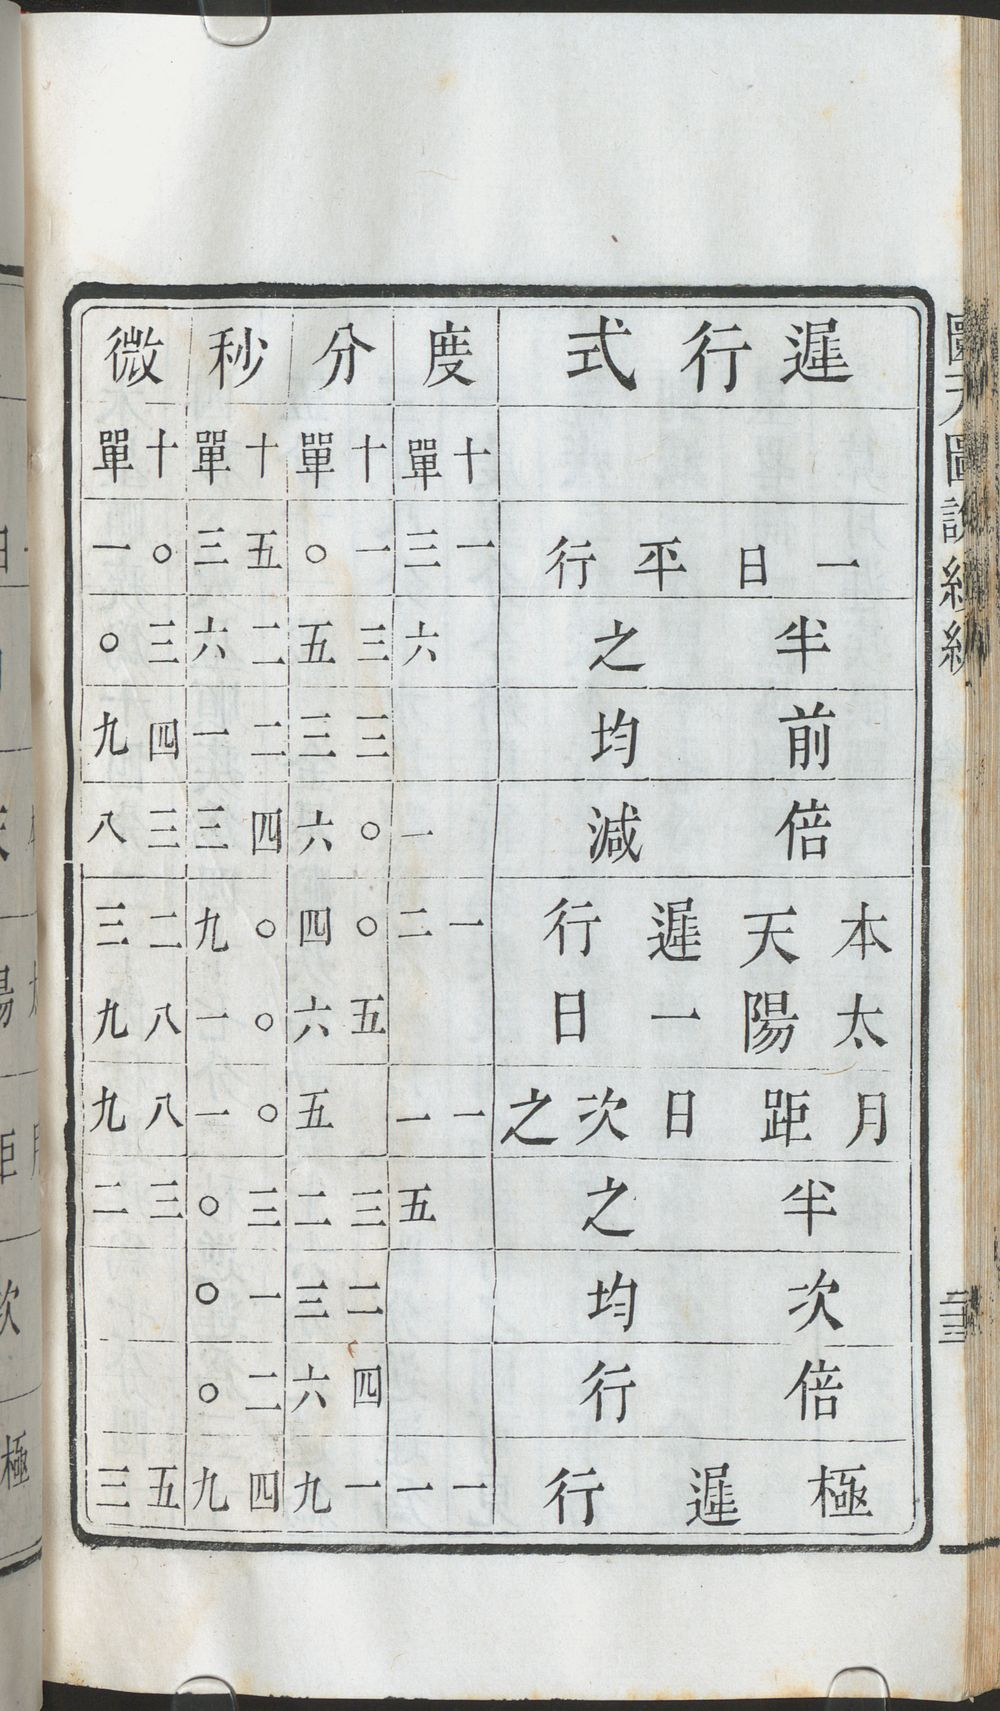 遲行式度分秒微
十單十單十單十單
一日平行一三一〇五三〇一
半之六三五二六三〇
前均三三二一四九
倍減一〇六四三三八
本天遲行一二〇四〇九二三
太陽一日五六〇一八九
月距日次之一一五〇一八九
半之五三二三〇三二
次均二三一〇
倍行四六二〇
極遲行一一一九四九五三
圜天圖說續編